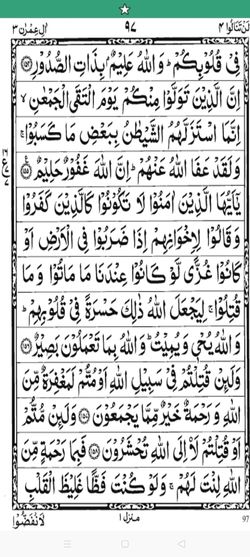 لن تنالوا ۴ ۹۷ اٰل عمرٰن ۳
فِیْ قُلُوْبِكُمْ ؕ وَاللّٰهُ عَلِیْمٌۢ بِذَاتِ الصُّدُوْرِ ﴿۱۵۴﴾
اِنَّ الَّذِیْنَ تَوَلَّوْا مِنْكُمْ یَوْمَ الْتَقَی الْجَمْعٰنِ ۙ
اِنَّمَا اسْتَزَلَّهُمُ الشَّیْطٰنُ بِبَعْضِ مَا كَسَبُوْا ۚ
وَلَقَدْ عَفَا اللّٰهُ عَنْهُمْ ؕ اِنَّ اللّٰهَ غَفُوْرٌ حَلِیْمٌ ﴿۱۵۵﴾
یٰۤاَیُّهَا الَّذِیْنَ اٰمَنُوْا لَا تَكُوْنُوْا كَالَّذِیْنَ كَفَرُوْا
وَقَالُوْا لِاِخْوَانِهِمْ اِذَا ضَرَبُوْا فِی الْاَرْضِ اَوْ
كَانُوْا غُزًّی لَّوْ كَانُوْا عِنْدَنَا مَا مَاتُوْا وَمَا
قُتِلُوْا ۚ لِیَجْعَلَ اللّٰهُ ذٰلِكَ حَسْرَةً فِیْ قُلُوْبِهِمْ ؕ
وَاللّٰهُ یُحْیٖ وَیُمِیْتُ ؕ وَاللّٰهُ بِمَا تَعْمَلُوْنَ بَصِیْرٌ ﴿۱۵۶﴾
وَلَىِٕنْ قُتِلْتُمْ فِیْ سَبِیْلِ اللّٰهِ اَوْ مُتُّمْ لَمَغْفِرَةٌ مِّنَ
اللّٰهِ وَرَحْمَةٌ خَیْرٌ مِّمَّا یَجْمَعُوْنَ ﴿۱۵۷﴾ وَلَىِٕنْ مُّتُّمْ
اَوْ قُتِلْتُمْ لَاۡاِلَی اللّٰهِ تُحْشَرُوْنَ ﴿۱۵۸﴾ فَبِمَا رَحْمَةٍ مِّنَ
اللّٰهِ لِنْتَ لَهُمْ ۚ وَلَوْ كُنْتَ فَظًّا غَلِیْظَ الْقَلْبِ
لَانْفَضُّوْا منزل ۱ 97